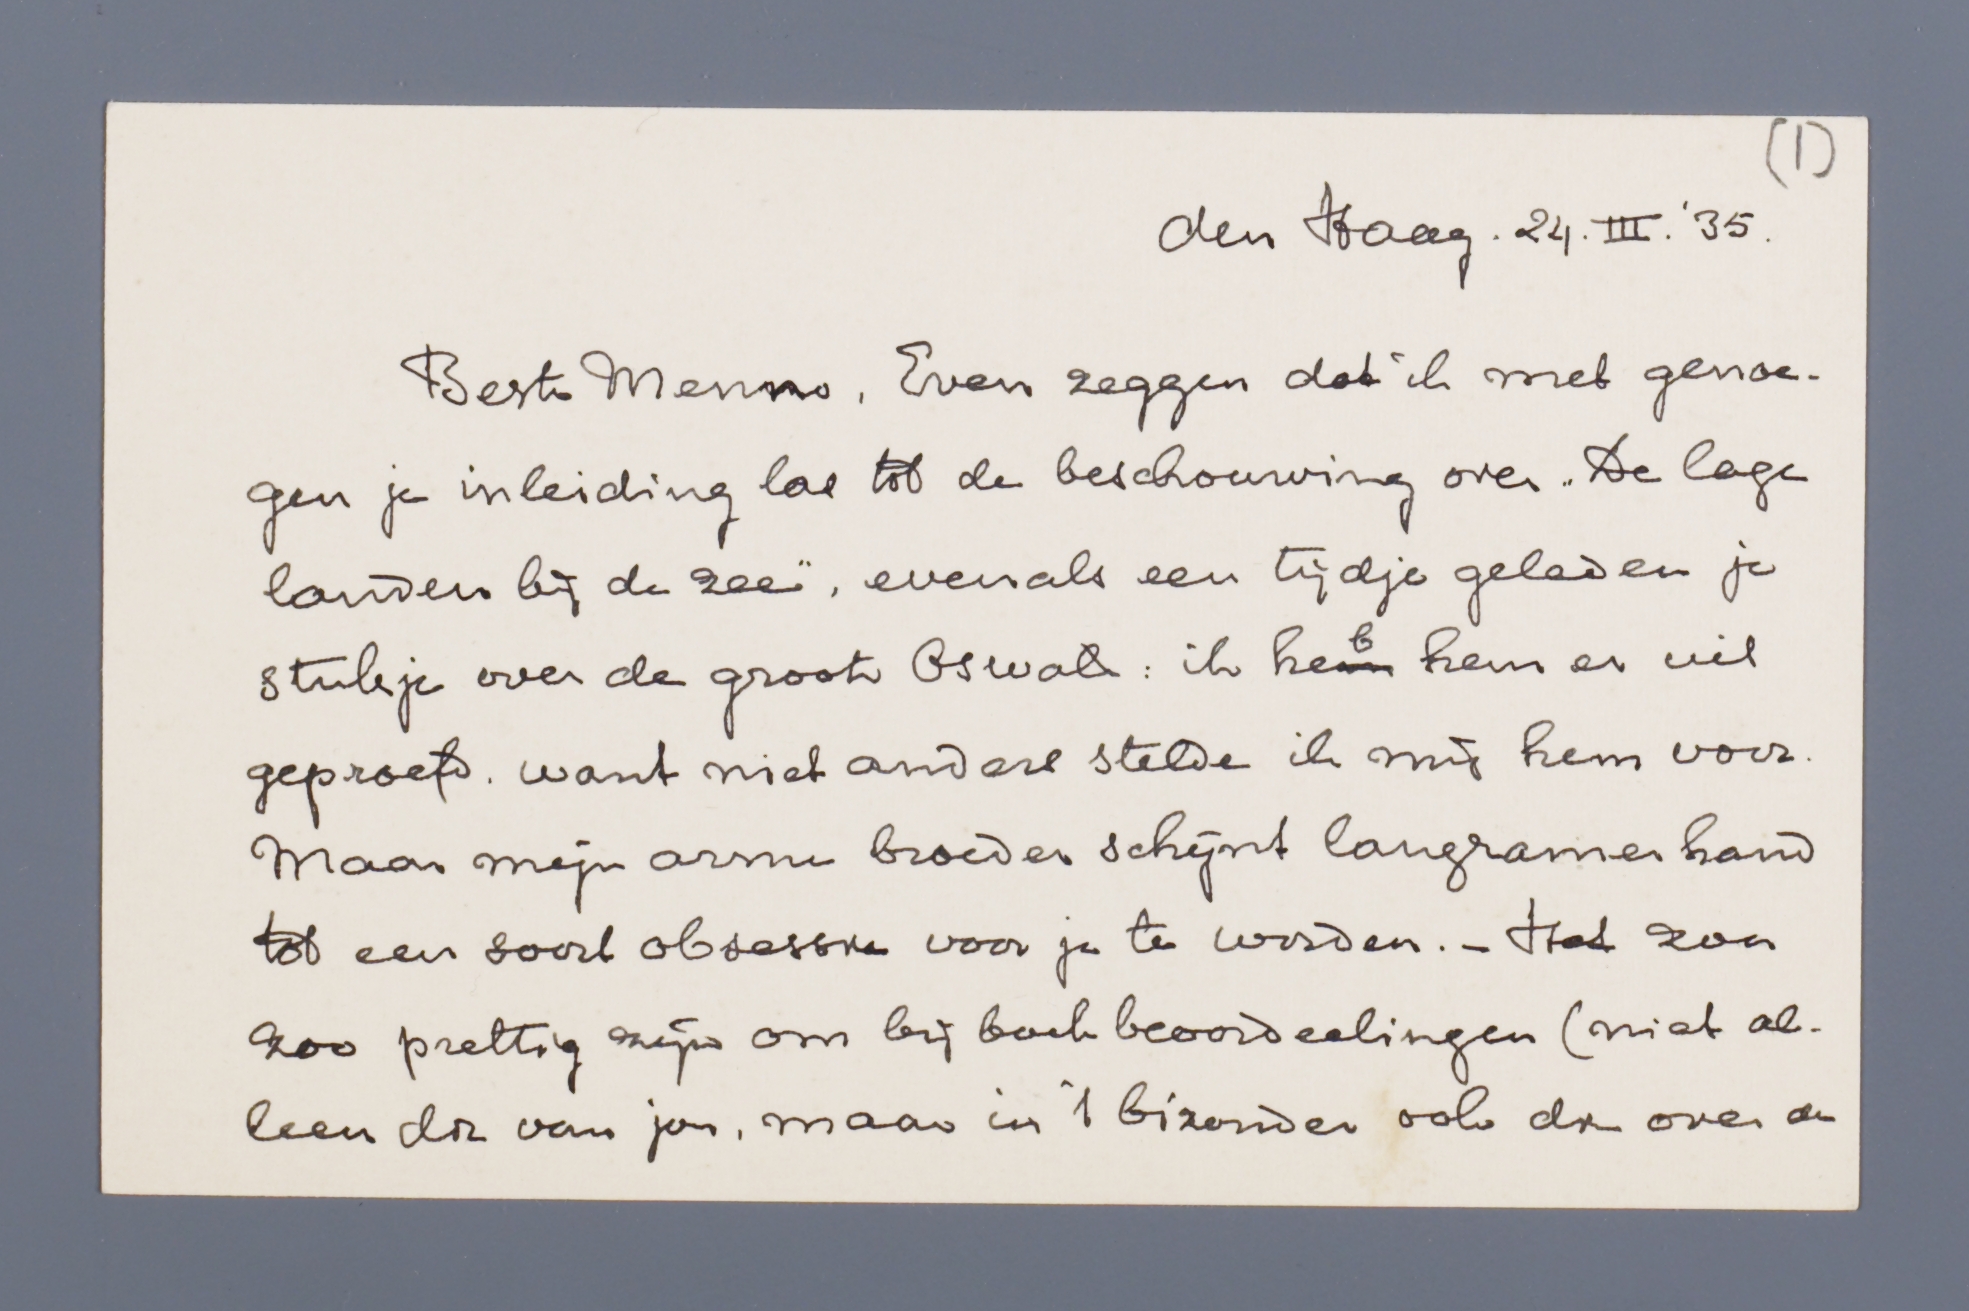 (1)
den Haag. 24. III. '35.
Beste Menno, Even zeggen dat ik met genoe-
gen je inleiding las tot de beschouwing over „De lage
landen bij de zee", evenals een tijdje geleden je
stukje over de groote Oswald: ik heb hem er uit
geproefd. want niet anders stelde ik mij hem voor.
Maar mijn arme broeder schijnt langzamerhand
tot een soort obsessie voor je te worden. – Het zou
zoo prettig zijn om bij boekbeoordeelingen (niet al-
leen die van jou, maar in 't bizonder ook die over de